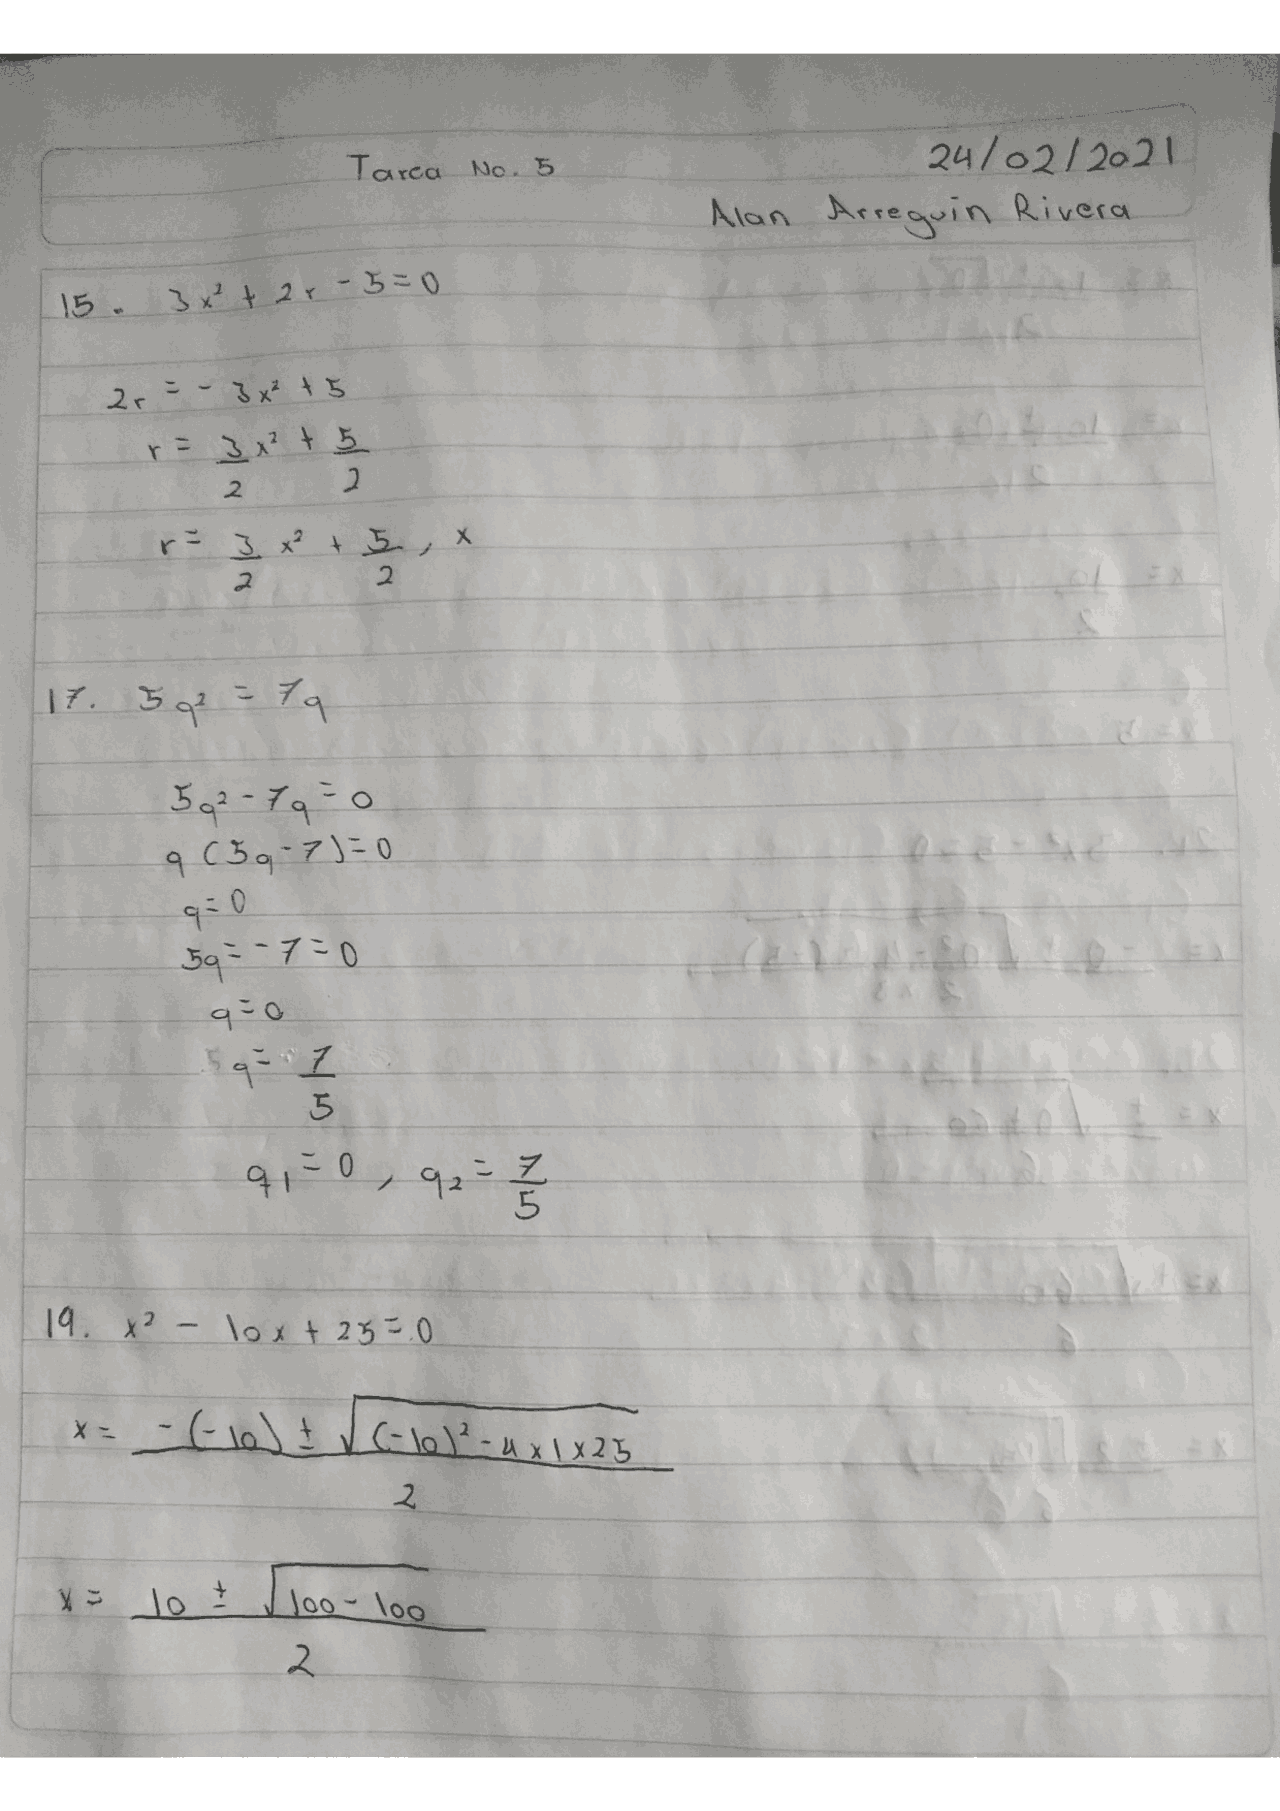 Tarea No. 5
24/02/2021
Alan Arreguin Rivera
15. 3x² + 2r - 5 = 0
2r = - 3x² + 5
r = 3/2 x² + 5/2
r = 3/2 x² + 5/2, x
17. 5q² = 7q
5q² - 7q = 0
q (5q - 7) = 0
q = 0
5q = - 7 = 0
q = 0
q = 7/5
q₁ = 0, q₂ = 7/5
19. x² - 10x + 25 = 0
x = -(-10) ± √(-10)² - 4 x 1 x 25 / 2
x = 10 ± √100 - 100 / 2